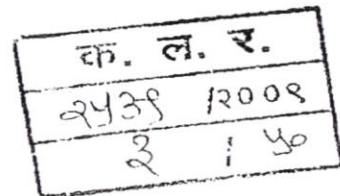 क. ल. र.
२५३९ /२००९
३ / ५०